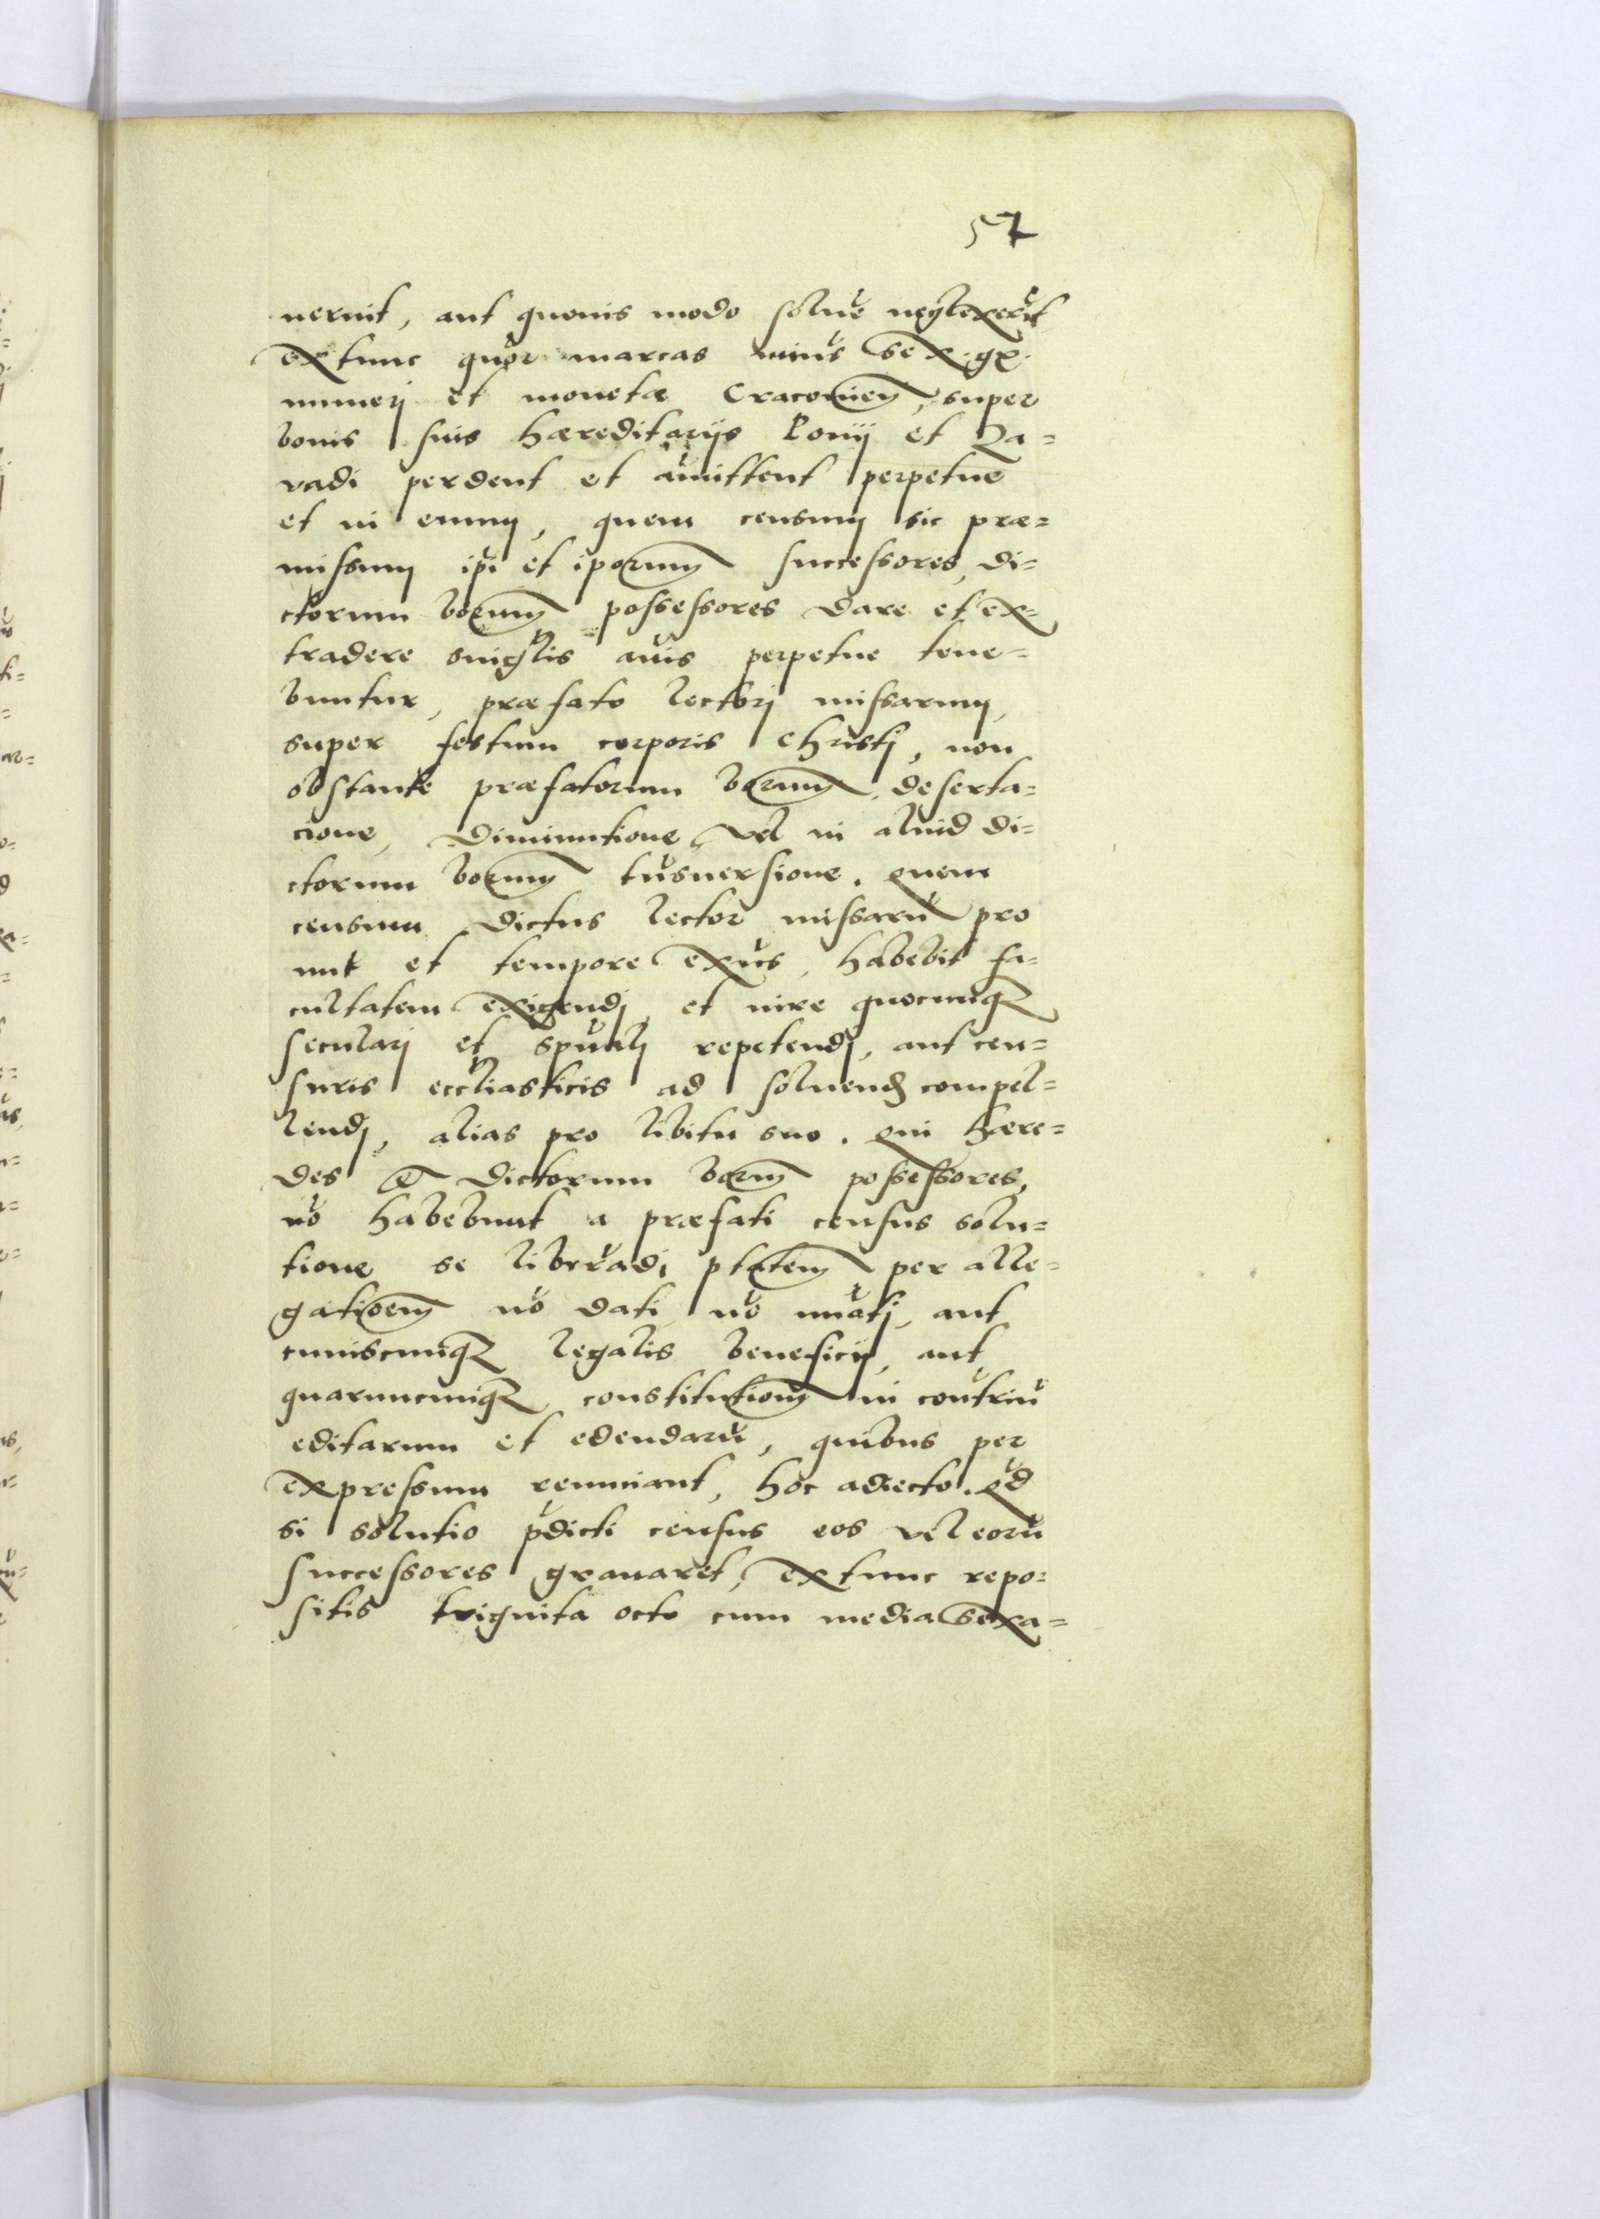 57
nerint, aut quouis modo soluē neglexerīt
extunc quōr marcas minūs sex. gr.
numerj et monetæ Cracouien̄, super
bonis suis hæreditarijs Lonij et Za=
vadi perdent et amittent perpetue
et in euum, quem censum sic præ=
missum ip̄i et ip̄orum successores, di=
ctorum bōrum possessores dare et ex=
tradere singl̄is an̄is perpetue tene=
buntur, præfato lectorj missarum,
super festum corporis Christj, non
obstante præfatorum bōrum deserta=
cione, diminutione, vel in aliud di=
ctorum bōrum tn̄suersione. Quem
censum dictus lector missarū pro
nunc et tempore exn̄s, habebit fa=
cultatem exigendj, et iure quocunq3
secularj et spūalj repetendj, aut cen=
suris eccl̄iasticis ad soluend compel=
lendj, alias pro libitu suo. Qui hære=
des dictorum bōrum possessores,
nō habebunt a præfati census solu=
tione se liberādi ptātem per alle=
gatiōem nō dati nō numātj, aut
cuiuscunq3 legalis beneficij, aut
quarumcunq3 constitutionū in cōtriū
editarum et edendarū, quibus per
expressum renunciant, hoc adiecto. Qd̄
si solutio p̄dicti census eos vel eorū
successores grauaret, extunc repo=
sitis triginta octo cum media sexa=